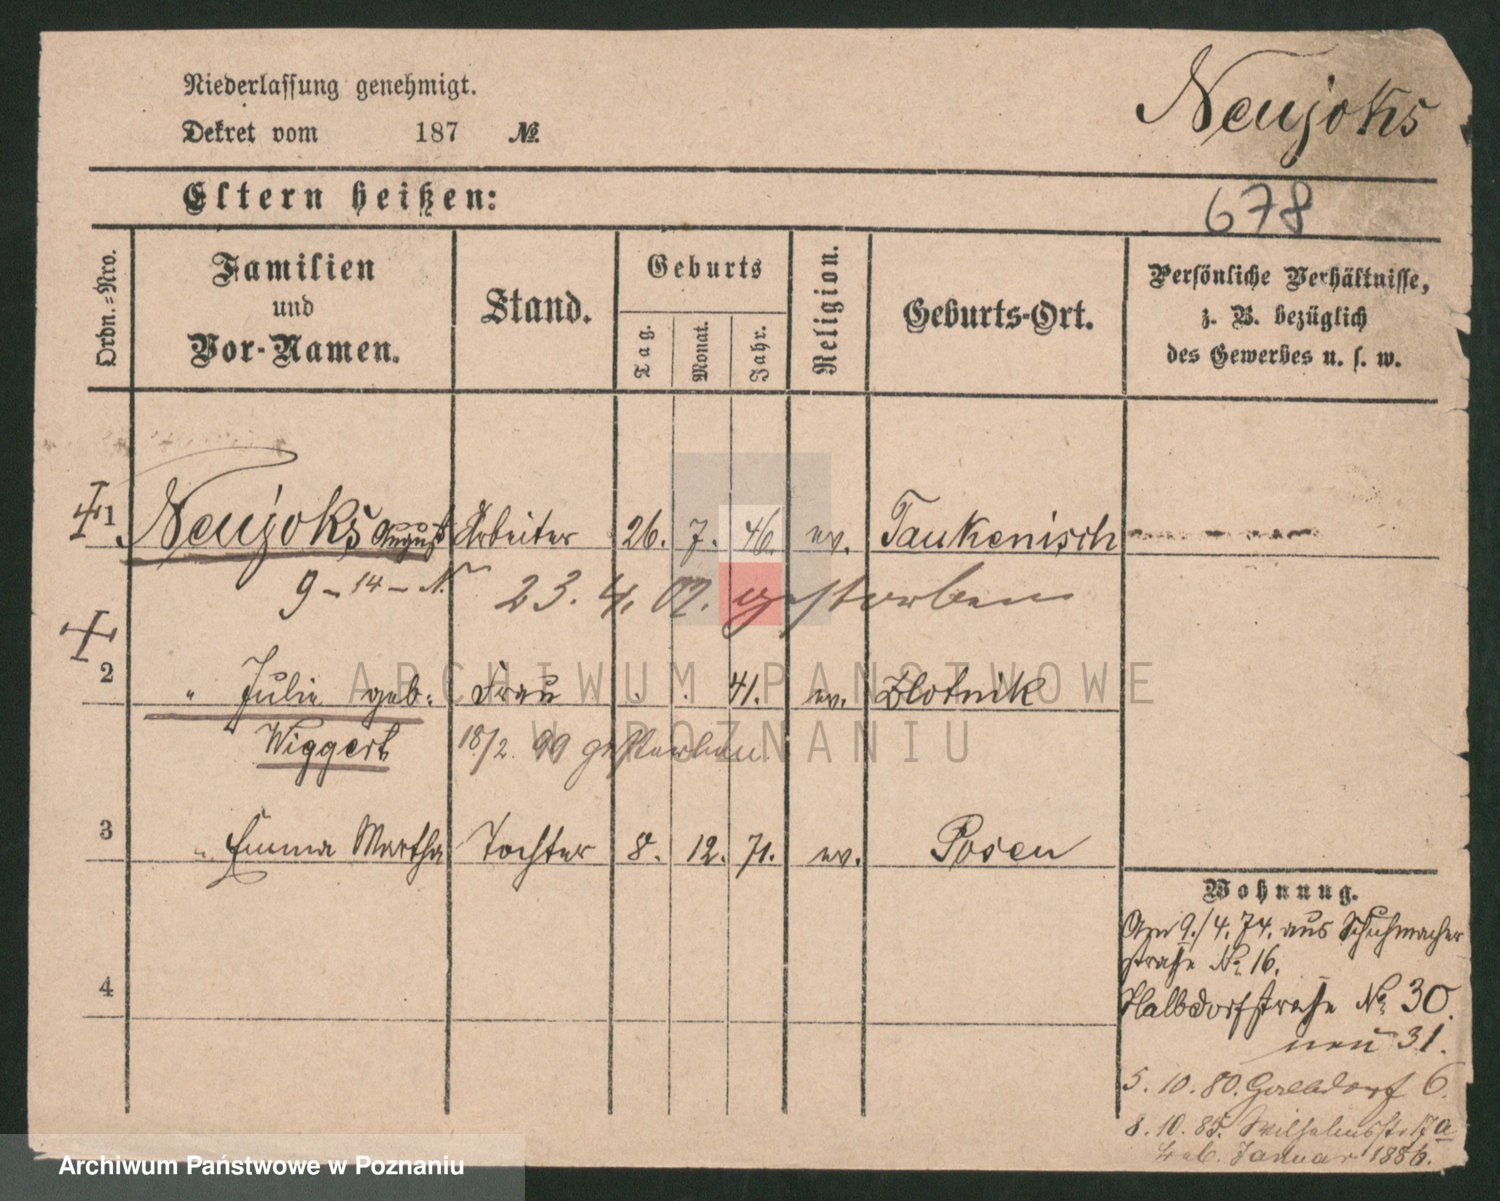 Niederlassung genehmigt.
Dekret vom 187 №.
Neujoks
Eltern heißen:
678
Ordn.=Nro.
Familien
und
Vor-Namen.
Stand.
Geburts
Tag.
Monat.
Jahr.
Religion.
Geburts-Ort.
Persönliche Verhältnisse,
z. B. bezüglich
des Gewerbes u. s. w.
1 Neujoks August Arbeiter 26. 7. 46. ev. Taukenisch
9-14-N. 23. 4. 02. gestorben
2 " Julie geb: Frau 41. ev. Zlotnik
Wiggert 18/2. 99 gestorben
3 " Emma Martha Tochter 8. 12. 71. ev. Posen
4
Wohnung.
Am 9./4. 74. aus Schuhmacher
straße № 16.
Halbdorfstraße № 30.
neu 31.
5. 10. 80. Halbdorf 6.
8. 10. 85. Wilhelmsstr. 17a
Januar 1886.
ARCHIWUM PAŃSTWOWE
W POZNANIU
Archiwum Państwowe w Poznaniu